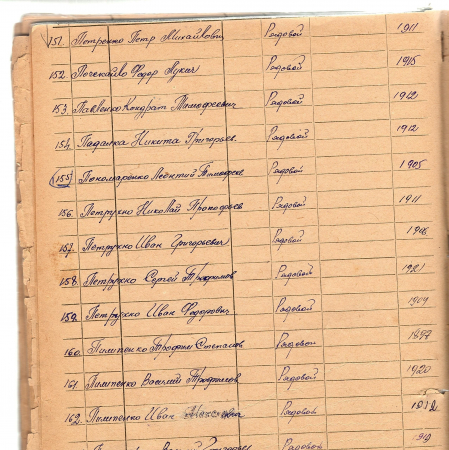 151. Петренко Петр Михайлович Рядовой 1911
152. Почекайло Федор Лукич Рядовой 1915
153. Павленко Кондрат Тимофеевич Рядовой 1912
154. Падалка Никита Григорьев. Рядовой 1912
155. Пономаренко Леонтий Тимофеев Рядовой 1905
156. Петрухно Николай Прокофьев Рядовой 1911
157. Петрухно Иван Григорьевич Рядовой 1916
158. Петрухно Сергей Трофимов Рядовой 1921
159. Петрухно Иван Федорович Рядовой 1909
160. Пилипенко Трофим Степанов Рядовой 1897
161 Пилипенко Василий Трофимов Рядовой 1920
162. Пилипенко Иван Рядовой
Григорьев Рядовой 1919